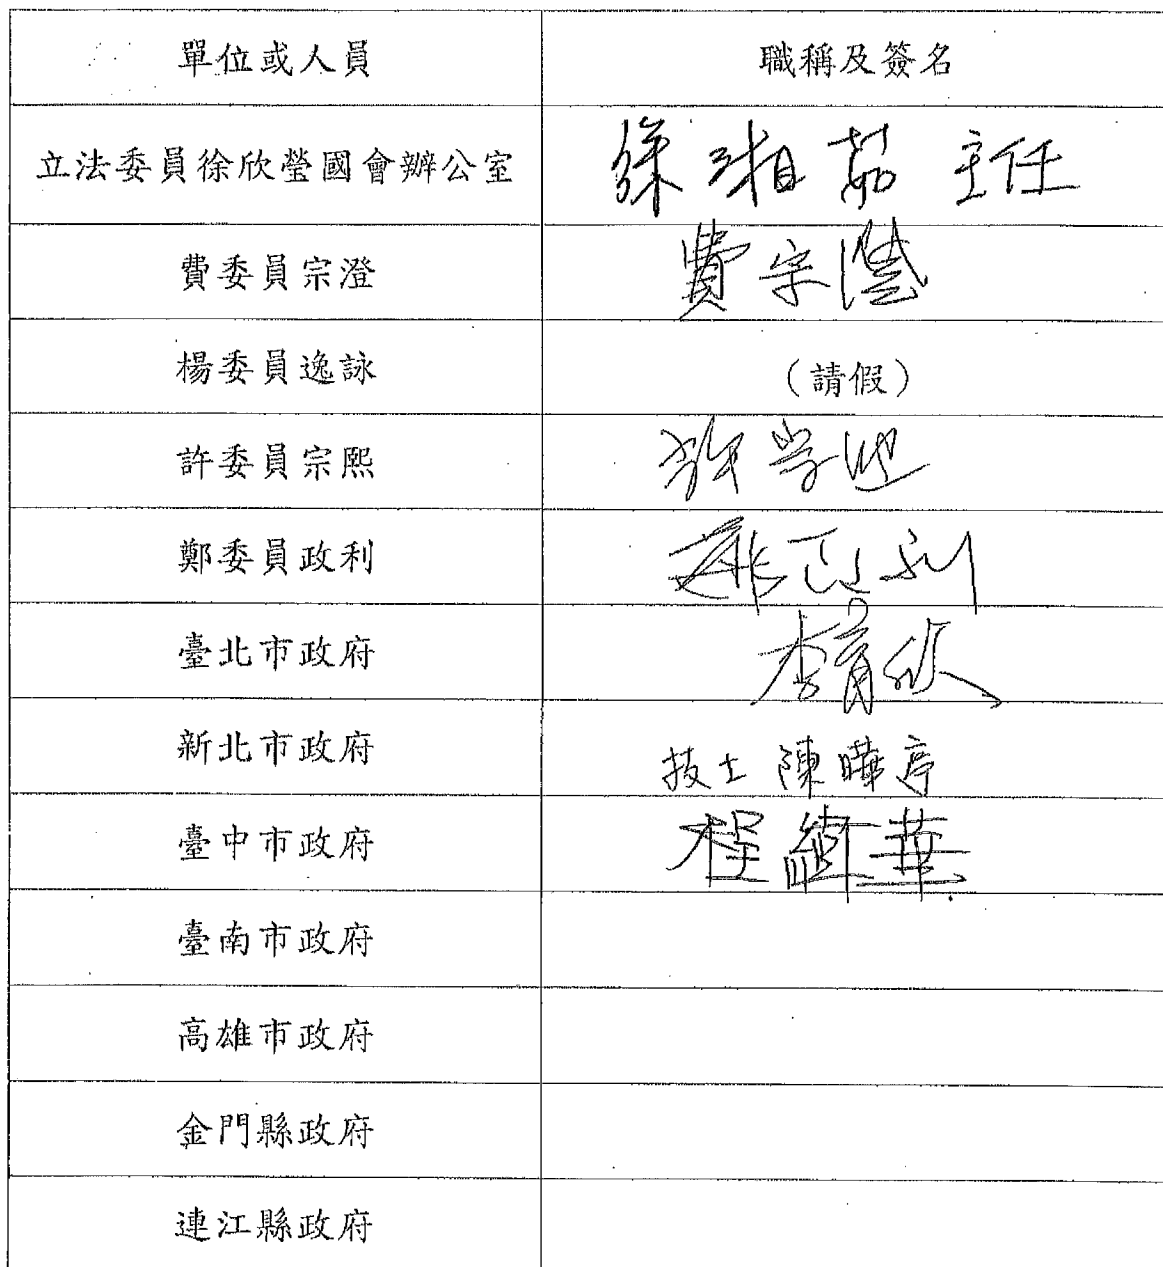 單位或人員 職稱及簽名
立法委員徐欣瑩國會辦公室 徐湘茹 主任
費委員宗澄 費宗澄
楊委員逸詠 (請假)
許委員宗熙 許宗熙
鄭委員政利 鄭政利
臺北市政府 李育欣
新北市政府 技士 陳曄亭
臺中市政府 程紅華
臺南市政府
高雄市政府
金門縣政府
連江縣政府